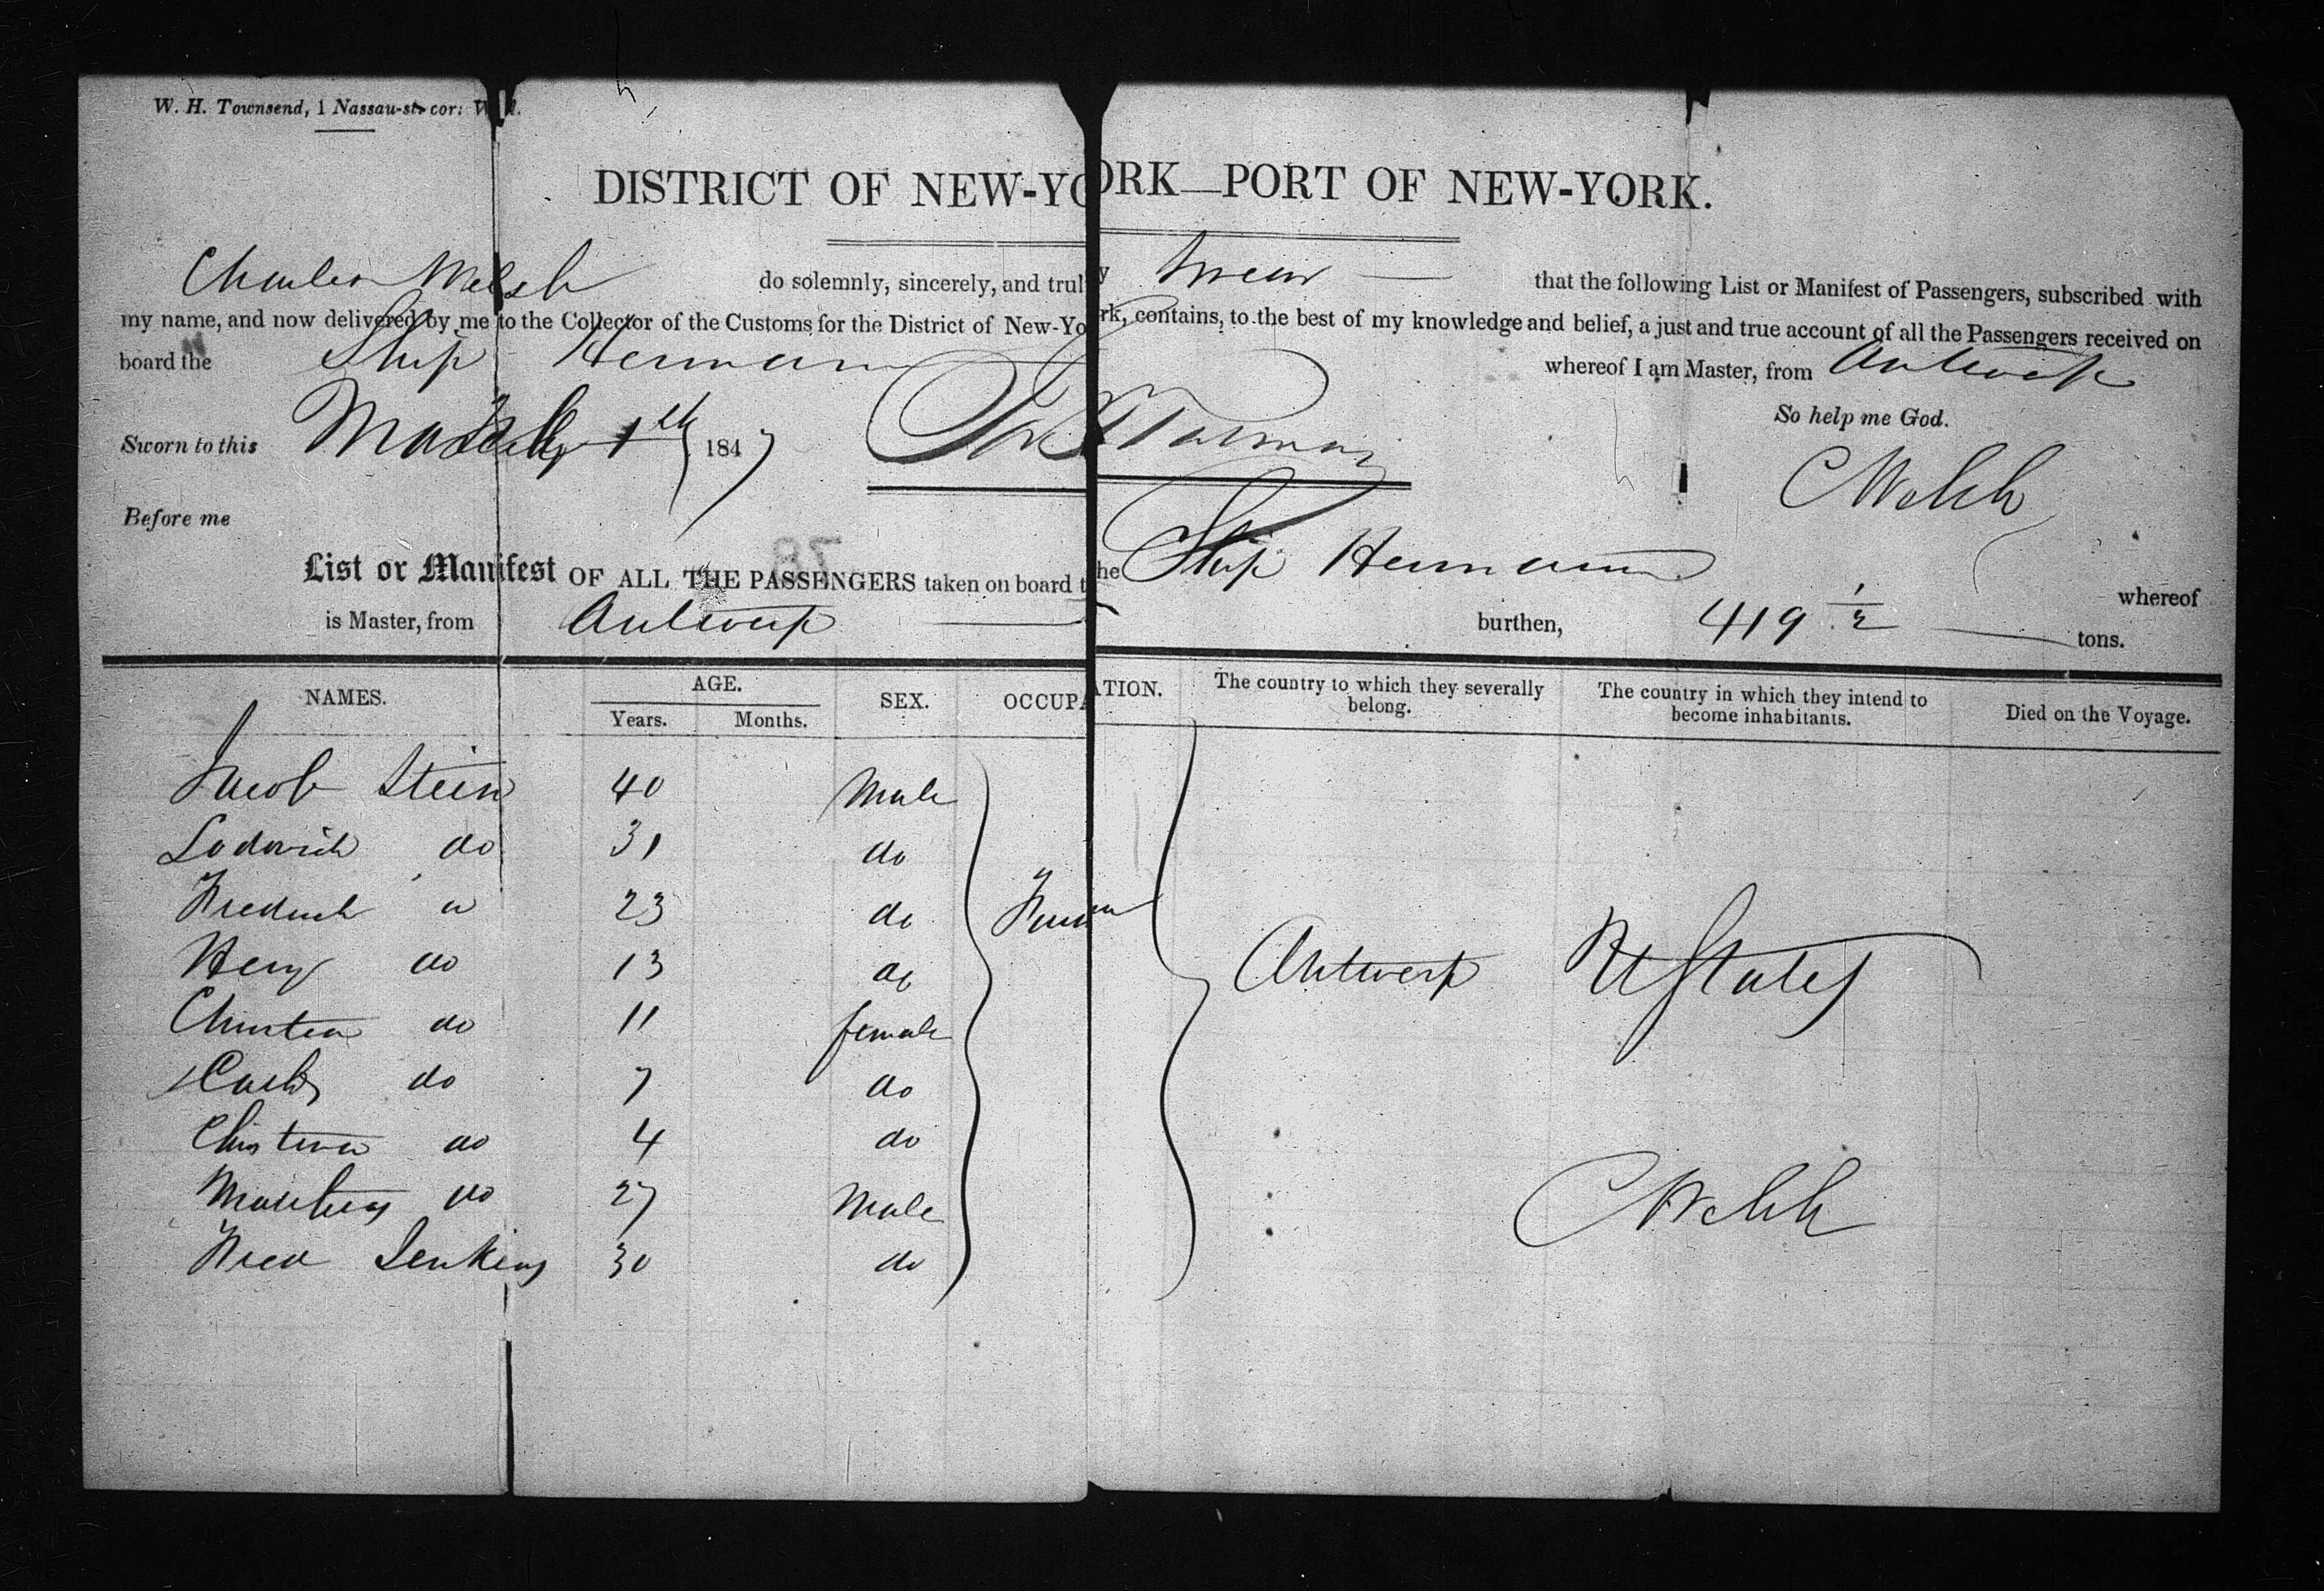 W. H. Townsend, 1 Nassau-st. cor: W
DISTRICT OF NEW-YORK—PORT OF NEW-YORK.
Charles Welsh do solemnly, sincerely, and truly swear that the following List or Manifest of Passengers, subscribed with
my name, and now delivered by me to the Collector of the Customs for the District of New-York, contains, to the best of my knowledge and belief, a just and true account of all the Passengers received on
board the Ship Hermann whereof I am Master, from Antwerp
So help me God.
Sworn to this 1847
C Welsh
Before me
List or Manifest OF ALL THE PASSENGERS taken on board the Ship Hermann whereof
is Master, from Antwerp burthen, 419 1/2 tons.
NAMES. AGE. SEX. OCCUPATION. The country to which they severally belong. The country in which they intend to become inhabitants. Died on the Voyage.
Years. Months.
Jacob Stein 40 Male
Lodwich do 31 do
Fredrick do 23 do Farmer
Henry do 13 do Antwerp U States
do 11 female
do 7 do
Christina do 4 do
do 27 Male
C Welsh
Fred Jenkins 30 do